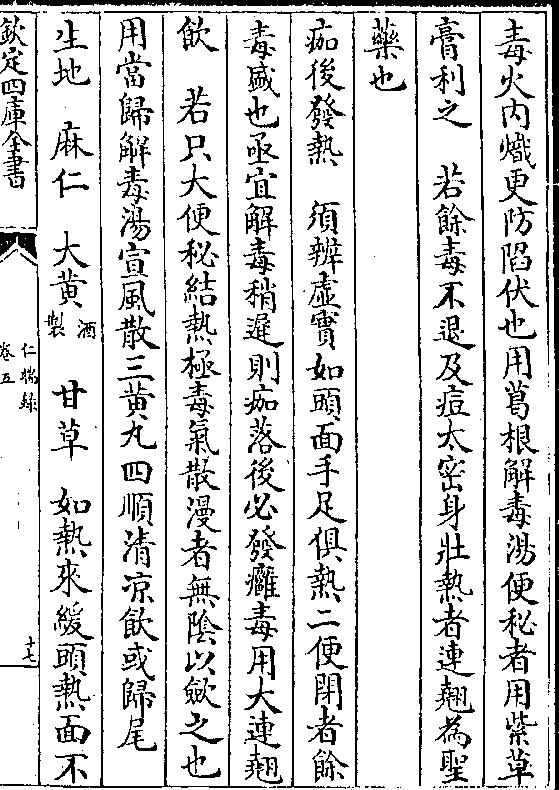 毒火内熾更防陷伏也用葛根解毒湯便秘者用紫草
膏利之　若餘毒不退及痘太密身壯熱者連翹為聖
藥也
痂後發熱　須辨虛實如頭面手足俱熱二便閉者餘
毒盛也亟宜解毒稍遲則痂落後必發癰毒用大連翹
飲　若只大便秘結熱極毒氣散漫者無陰以斂之也
用當歸解毒湯宣風散三黄丸四順清凉飲或歸尾
生地　麻仁　大黄酒製　甘草　如熱來緩頭熱面不
欽定四庫全書
仁端錄
卷五
十七